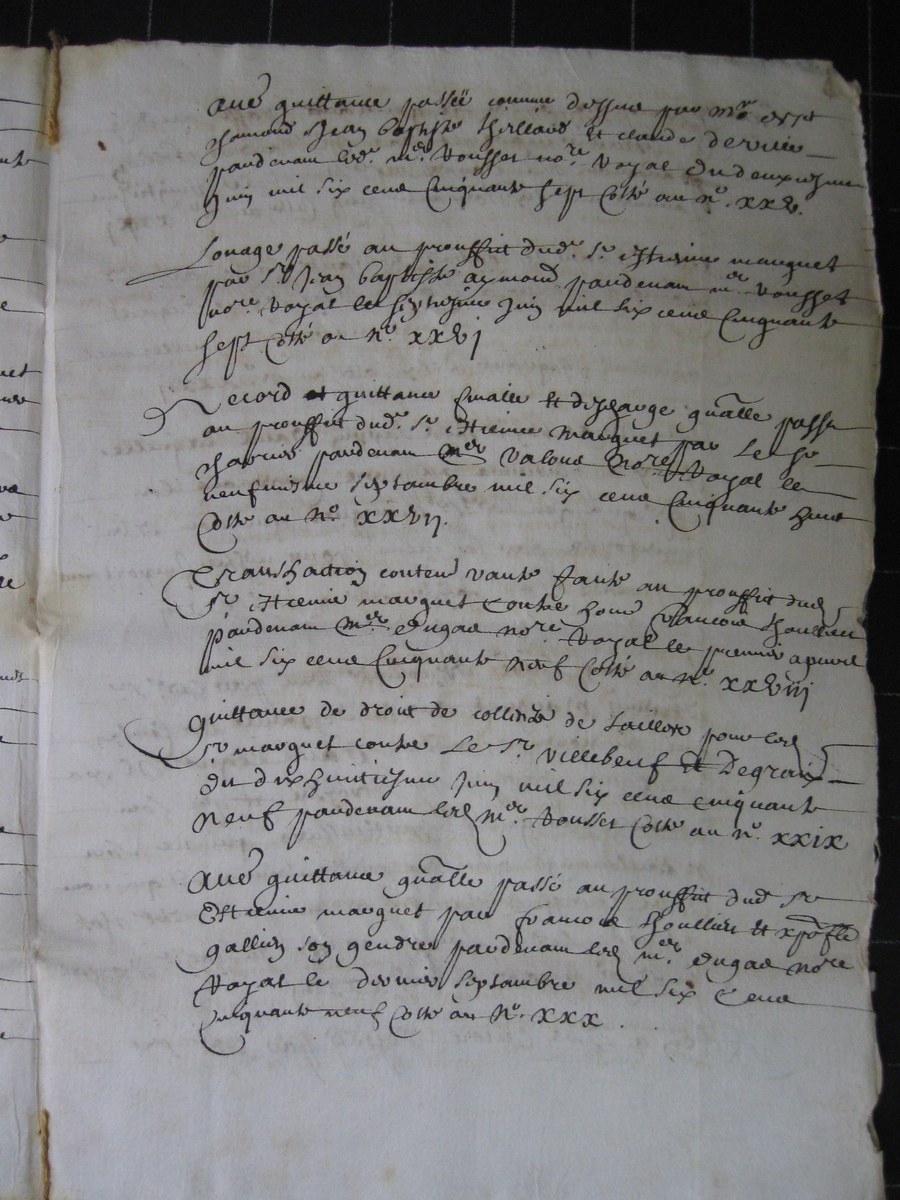 Autre quittance passée comme dessus par Mr
Jean baptiste et claude deville
pardevant led. Mr. Rousset no.re Royal du deuxiesme
Juin mil six cens Cinquante sept Cotté au n.o xxv.
Louage passé au prouffict dud. Sr. Estienne marquet
par Sr. Jean baptiste aymond pardevant mr. Rousset
no.re Royal le septiesme Juin mil six cens Cinquante
sept Cotté au n.o xxvj
Record et quittance finalle et descharge g̃nalle passé
au prouffict dud. Sr. Estienne marquet par Le Sr
pardevant Mr. no.re Royal le
neufviesme septambre mil six cens Cinquante huit
Cotté au n.o xxvij.
Transaction conten. vante faitte au prouffict dud
Sr. Estienne marquet Contre hon. francois
pardevant Mr. dugad no.re Royal le premier apvril
mil six cens Cinquante neuf Cotté au n.o xxviij
Quittance de droit de de pour led
Sr. marquet contre Le Sr. Villebeuf et Degraix
du dixhuitiesme Juin mil six cens cinquante
Neuf pardevant led mr. Rousset Cotté au n.o xxix
Autre quittance g̃nalle passé au prouffict dud Sr
Estienne marquet par francois et xp̃ofle
gallien son gendre pardevant led mr. dugad no.re
Royal le dernier septambre mil six Cens
Cinquante neuf Cotté au n.o xxx.